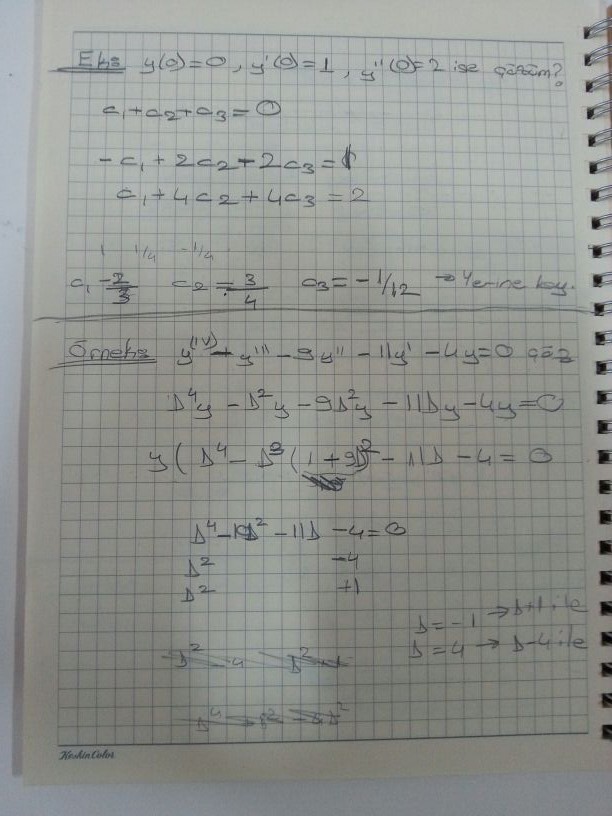 Ek: y(0)=0, y'(0)=1, y''(0)=2 ise çözüm?
c₁+c₂+c₃=0
-c₁+2c₂-2c₃=1
c₁+4c₂+4c₃=2
1 1/4 -1/4
c₁ = -2/3 c₂ = 3/4 c₃ = -1/12 → Yerine koy.
Örnek: y⁽ᴵⱽ⁾ - y''' - 9y'' - 11y' - 4y=0 çöz
D⁴y - D²y - 9D²y - 11Dy - 4y=0
y ( D⁴ - D³ (1+9D² - 11D - 4 = 0
D⁴-10D² - 11D - 4=0
D² -4
D² +1
D=-1 → D+1 ile
D=4 → D-4 ile
D² -4 D²+1
KeskinColor